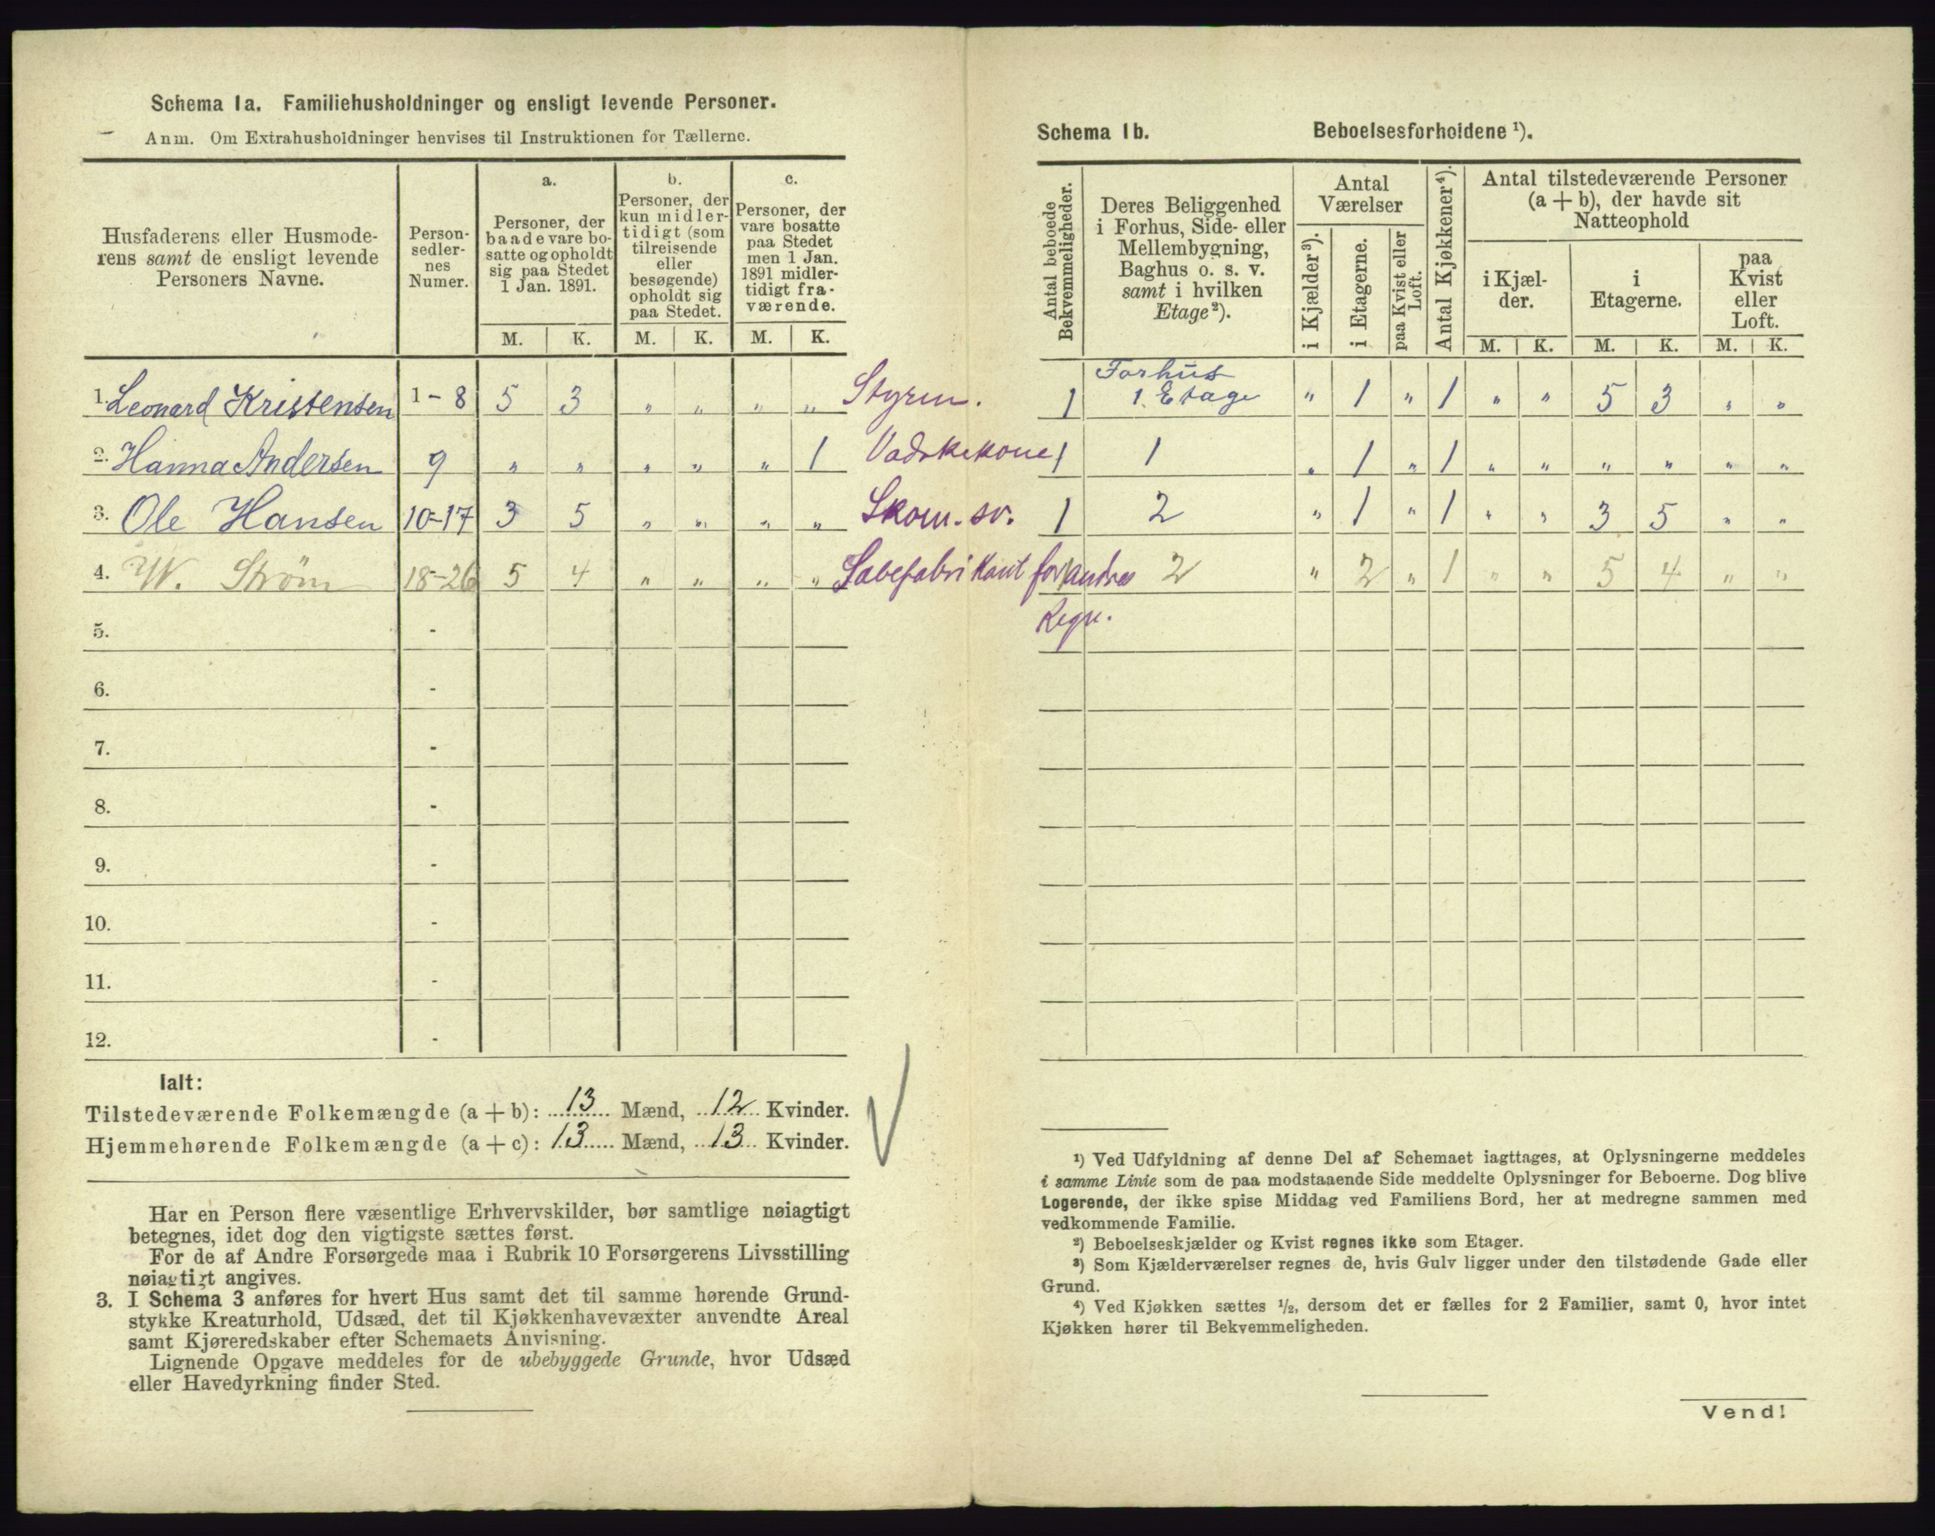 Schema Ia. Familiehusholdninger og ensligt levende Personer.
Anm. Om Extrahusholdninger henvises til Instruktionen for Tællerne.
Husfaderens eller Husmode-
rens samt de ensligt levende
Personers Navne.
Person-
sedler-
nes
Numer.
a.
Personer, der
baade vare bo-
satte og opholdt
sig paa Stedet
1 Jan. 1891.
b.
Personer, der
kun midler-
tidigt (som
tilreisende
eller
besøgende)
opholdt sig
paa Stedet.
c.
Personer, der
vare bosatte
paa Stedet
men 1 Jan.
1891 midler-
tidigt fra-
værende.
M. K. M. K. M. K.
1. Leonard Kristensen 1-8 5 3 " " " " Styrm.
2. Hanna Andersen 9 " " " " " 1 Vadskekone
3. Ole Hansen 10-17 3 5 " " " " Skom. sv.
4. W. Strøm 18-26 5 4 " " " " Sabefabrikant for andres
Regn.
5. -
6. -
7. -
8. -
9. -
10. -
11. -
12. -
Ialt:
Tilstedeværende Folkemængde (a + b): 13 Mænd, 12 Kvinder.
Hjemmehørende Folkemængde (a + c): 13 Mænd, 13 Kvinder.
Har en Person flere væsentlige Erhvervskilder, bør samtlige nøiagtigt
betegnes, idet dog den vigtigste sættes først.
For de af Andre Forsørgede maa i Rubrik 10 Forsørgerens Livsstilling
nøiagtigt angives.
3. I Schema 3 anføres for hvert Hus samt det til samme hørende Grund-
stykke Kreaturhold, Udsæd, det til Kjøkkenhavevæxter anvendte Areal
samt Kjøreredskaber efter Schemaets Anvisning.
Lignende Opgave meddeles for de ubebyggede Grunde, hvor Udsæd
eller Havedyrkning finder Sted.
Schema Ib. Beboelsesforholdene ¹).
Antal beboede
Bekvemmeligheder.
Deres Beliggenhed
i Forhus, Side- eller
Mellembygning,
Baghus o. s. v.
samt i hvilken
Etage²).
Antal
Værelser
i Kjælder³).
i Etagerne.
paa Kvist eller
Loft.
Antal Kjøkkener⁴).
Antal tilstedeværende Personer
(a + b), der havde sit
Natteophold
i Kjæl-
der.
i
Etagerne.
paa
Kvist
eller
Loft.
M. K. M. K. M. K.
Forhus
1 1. Etage " 1 " 1 " " 5 3 " "
1 1 " 1 " 1 " " " " " "
1 2 " 1 " 1 " " 3 5 " "
1 2 " 2 " 1 " " 5 4 " "
¹) Ved Udfyldning af denne Del af Schemaet iagttages, at Oplysningerne meddeles
i samme Linie som de paa modstaaende Side meddelte Oplysninger for Beboerne. Dog blive
Logerende, der ikke spise Middag ved Familiens Bord, her at medregne sammen med
vedkommende Familie.
²) Beboelseskjælder og Kvist regnes ikke som Etager.
³) Som Kjælderværelser regnes de, hvis Gulv ligger under den tilstødende Gade eller
Grund.
⁴) Ved Kjøkken sættes ½, dersom det er fælles for 2 Familier, samt 0, hvor intet
Kjøkken hører til Bekvemmeligheden.
Vend!